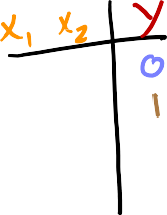 x₁ x₂ y
0
1